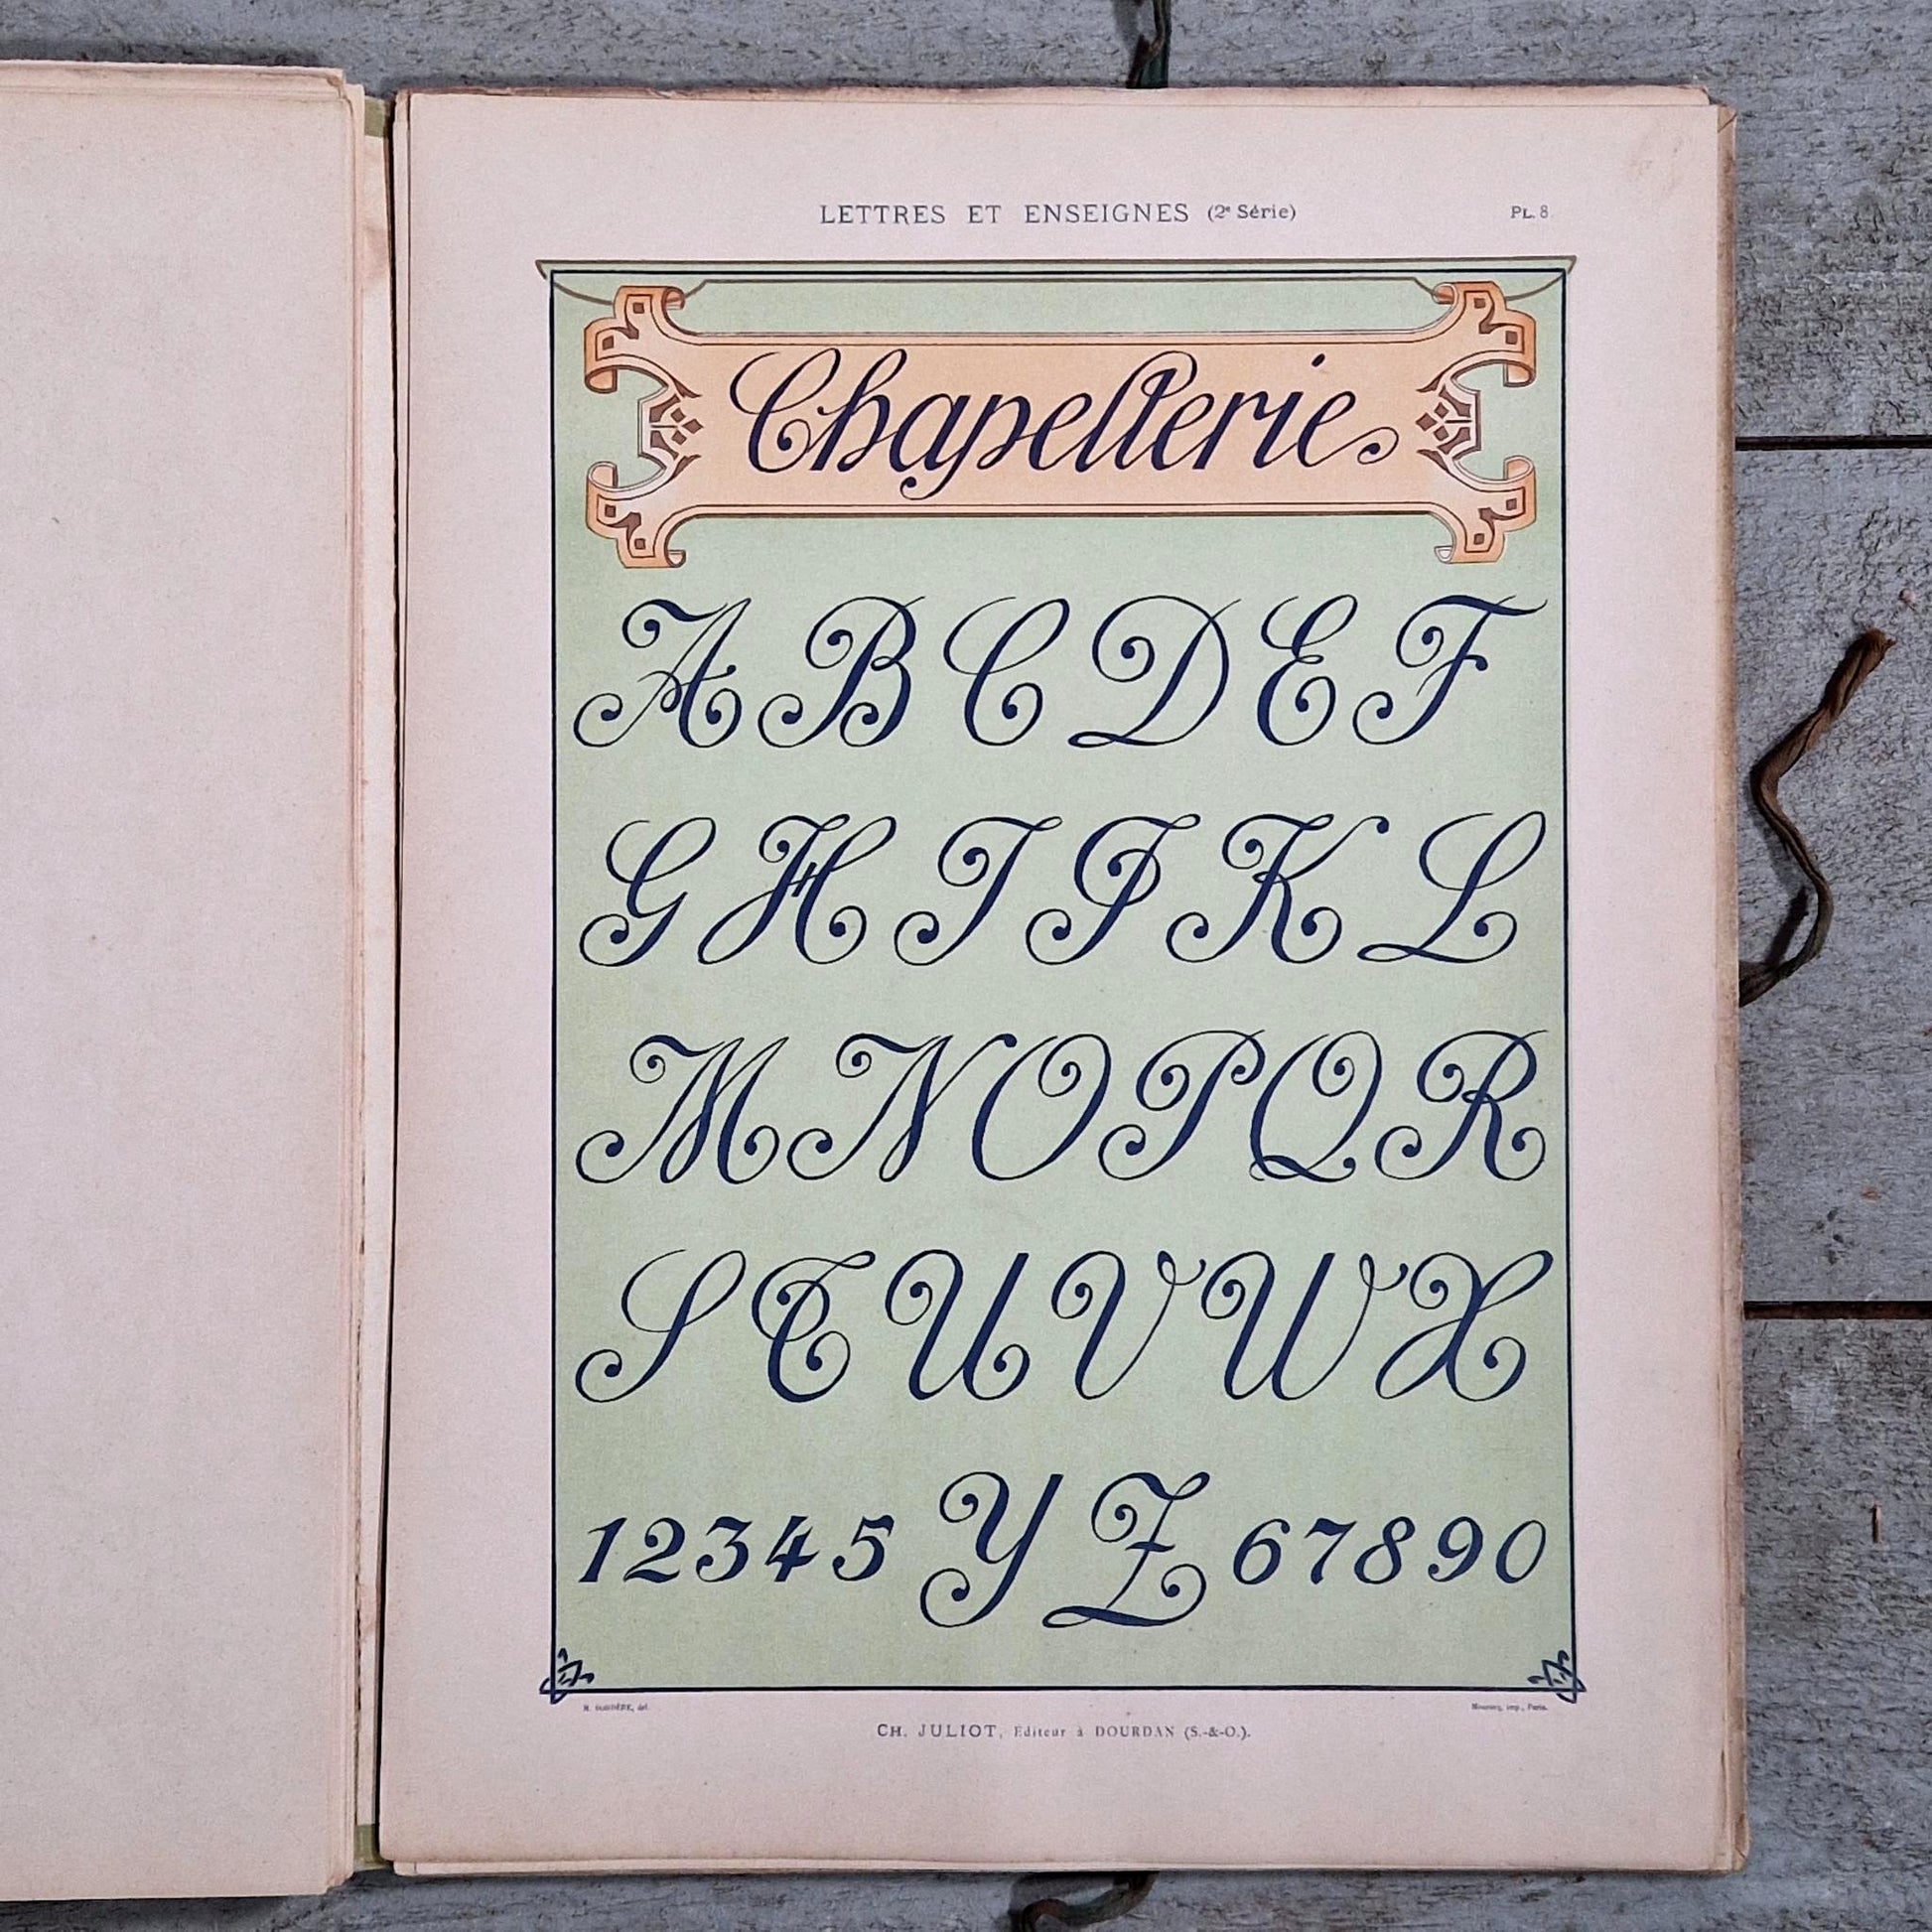 LETTRES ET ENSEIGNES (2e Série) PL. 8.
Chapellerie
A B C D E F
G H I J K L
M N O P Q R
S T U V W X
1 2 3 4 5 Y Z 6 7 8 9 0
imp., Paris.
CH. JULIOT, Éditeur à DOURDAN (S.-&-O.).